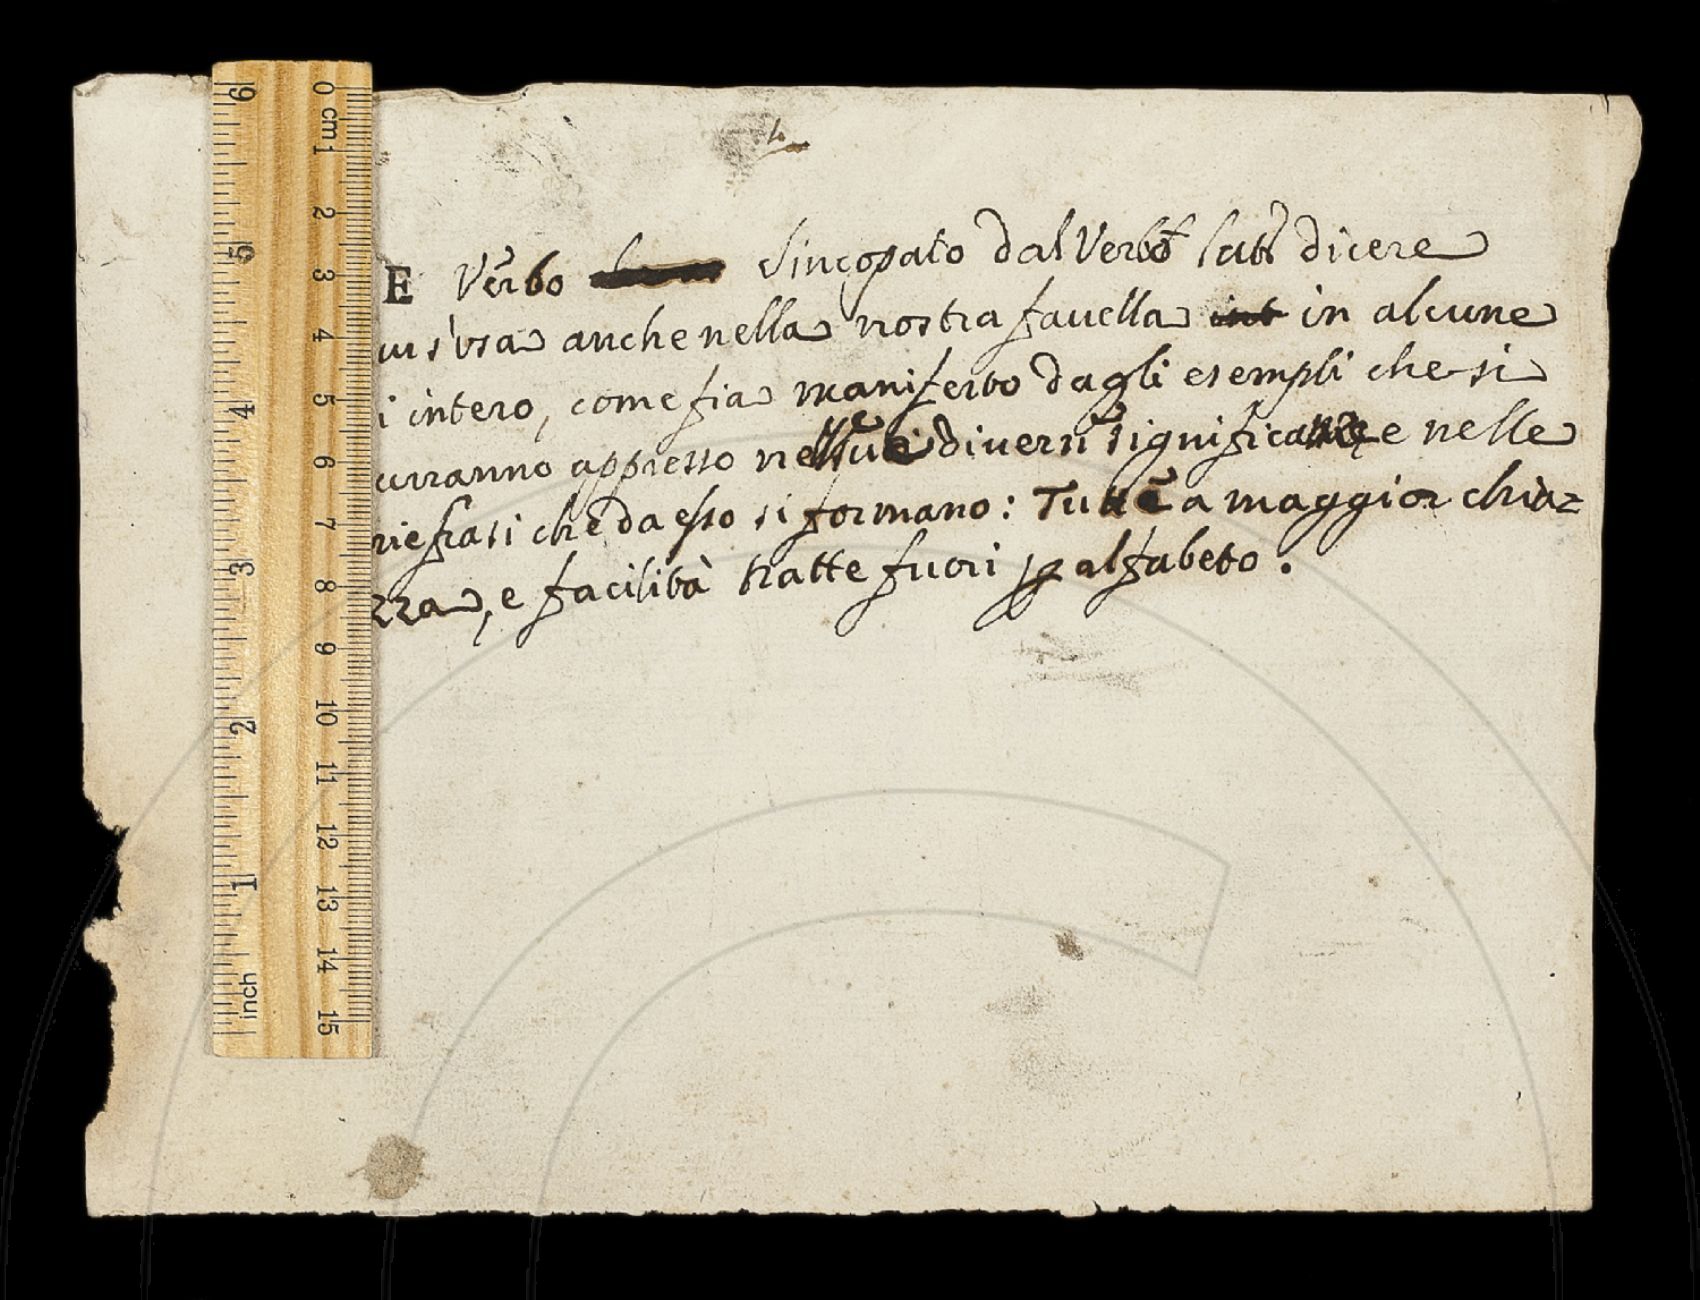 E Verbo Sincopato dal Verbo lat. dicere
ui s'usa anche nella nostra favella in alcune
i intero, come fia manifesto dagli esempli che si
urranno appresso nelle sue diversi significanze e nelle
rie frasi che da esso si formano: Tutte a maggior chia=
zza, e facilità tratte fuori p alfabeto.
6 5 4 3 2 1 inch
0 cm 1 2 3 4 5 6 7 8 9 10 11 12 13 14 15